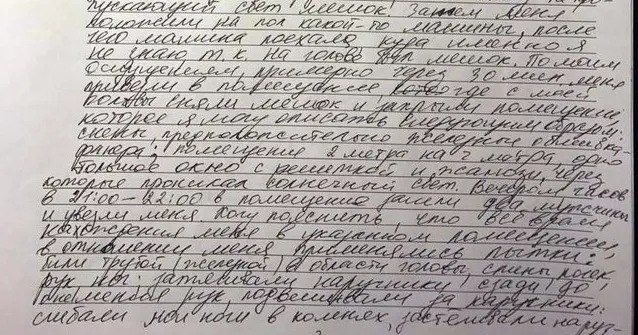 пускающий свет мешок. Затем меня
положили на пол какой-то машины, после
чего машина поехала, куда именно я
не знаю т.к. на голове был мешок. По моим
ощущениям, примерно через 30 мин меня
привели в помещение где с моей
головы сняли мешок и закрыли помещение,
которое я могу описать следующим образом:
стены, предположительно железные
помещение 2 метра на 2 метра, одно
большое окно с решеткой и жалюзи, через
которые проникал солнечный свет. Вечером, часов
в 21:00-22:00 в помещение зашли два мужчины
и увезли меня. Могу пояснить что всё время
нахождения меня в указанном помещении,
в отношении меня применялись пытки:
били трубой железной в области головы, спины, ног
рук, затягивали наручники сзади до
онемения рук, подвешивали за наручники:
сгибали мои ноги в коленях, застегивали наруч-